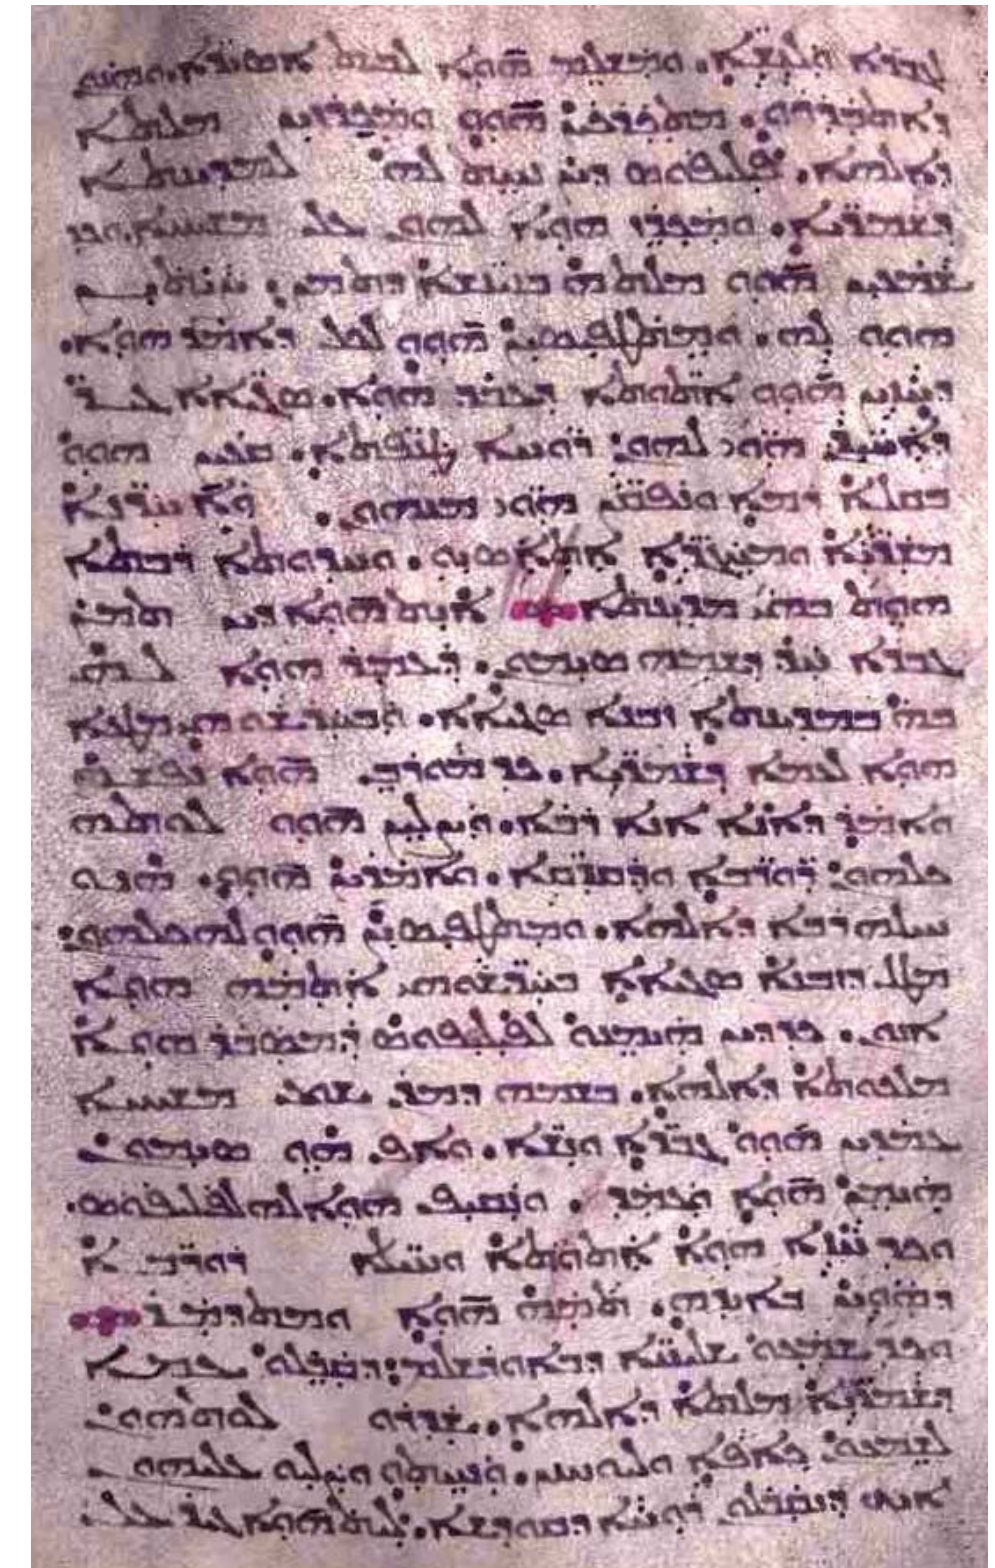 ܠܓܒܪܐ ܘܠܢܫܐ. ܘܡܫܠܡ ܗܘܐ ܠܒܝܬ ܐܣܝܪܐ. ܘܗܢܘܢ
ܕܐܬܒܕܪܘ. ܡܬܟܪܟܝܢ ܗܘܘ ܘܡܟܪܙܝܢ ܡܠܬܐ
ܕܐܠܗܐ. ܦܝܠܝܦܘܣ ܕܝܢ ܢܚܬ ܠܗ ܠܡܕܝܢܬܐ
ܕܫܡܪܝܐ. ܘܡܟܪܙ ܗܘܐ ܠܗܘܢ ܥܠ ܡܫܝܚܐ. ܘܟܕ
ܫܡܥܝܢ ܗܘܘ ܡܠܬܗ ܒܢܝܢܫܐ ܕܬܡܢ. ܨܝܬܝܢ
ܗܘܘ ܠܗ. ܘܡܬܛܦܝܣܝܢ ܗܘܘ ܠܟܠ ܕܐܡܪ ܗܘܐ.
ܕܚܙܝܢ ܗܘܘ ܐܬܘܬܐ ܕܥܒܕ ܗܘܐ. ܣܓܝܐܐ ܓܝܪ
ܕܐܚܝܕܢ ܗܘܝ ܠܗܘܢ ܪܘܚܐ ܛܢܦܬܐ. ܩܥܝܢ ܗܘܘ
ܒܩܠܐ ܪܡܐ ܘܢܦܩܢ ܗܘܝ ܡܢܗܘܢ. ܘܐܚܪܢܐ
ܡܫܪܝܐ ܘܡܚܓܪܐ ܐܬܐܣܝܘ. ܘܚܕܘܬܐ ܪܒܬܐ
ܗܘܬ ܒܗ ܒܡܕܝܢܬܐ ܗܝ ܐܝܬ ܗܘܐ ܕܝܢ ܬܡܢ
ܓܒܪܐ ܚܕ ܕܫܡܗ ܣܝܡܘܢ. ܕܥܡܪ ܗܘܐ ܠܗ
ܒܗ ܒܡܕܝܢܬܐ ܙܒܢܐ ܣܓܝܐܐ. ܘܒܚܪܫܘܗܝ ܡܛܥܐ
ܗܘܐ ܠܥܡܐ ܕܫܡܪܝܐ. ܟܕ ܡܘܪܒ ܗܘܐ ܢܦܫܗ
ܘܐܡܪ ܕܐܢܐ ܐܢܐ ܪܒܐ. ܘܨܠܝܢ ܗܘܘ ܠܘܬܗ
ܟܠܗܘܢ ܪܘܪܒܐ ܘܕܩܕܩܐ. ܘܐܡܪܝܢ ܗܘܘ. ܗܢܘ
ܚܝܠܗ ܪܒܐ ܕܐܠܗܐ. ܘܡܬܛܦܝܣܝܢ ܗܘܘ ܠܗ ܟܠܗܘܢ.
ܡܛܠ ܕܙܒܢܐ ܣܓܝܐܐ ܒܚܪܫܘܗܝ ܐܬܡܗ ܗܘܐ
ܐܢܘܢ. ܟܕ ܕܝܢ ܗܝܡܢܘ ܠܦܝܠܝܦܘܣ ܕܡܣܒܪ ܗܘܐ
ܡܠܟܘܬܐ ܕܐܠܗܐ. ܒܫܡܗ ܕܡܪܢ ܝܫܘܥ ܡܫܝܚܐ
ܥܡܕܝܢ ܗܘܘ ܓܒܪܐ ܘܢܫܐ. ܘܐܦ ܗܘ ܣܝܡܘܢ
ܗܝܡܢ ܗܘܐ ܘܥܡܕ. ܘܢܩܝܦ ܗܘܐ ܠܗ ܠܦܝܠܝܦܘܣ.
ܘܟܕ ܚܙܐ ܗܘܐ ܐܬܘܬܐ ܘܚܝܠܐ ܪܘܪܒܐ
ܕܗܘܝܢ ܒܐܝܕܗ. ܬܡܗ ܗܘܐ ܘܡܬܕܡܪ
ܘܟܕ ܫܡܥܘ ܫܠܝܚܐ ܕܒܐܘܪܫܠܡ. ܕܩܒܠܘ ܥܡܐ
ܕܫܡܪܝܐ ܡܠܬܐ ܕܐܠܗܐ. ܫܕܪܘ ܠܘܬܗܘܢ
ܠܫܡܥܘܢ ܟܐܦܐ ܘܠܝܘܚܢܢ. ܘܢܚܬܘ ܘܨܠܝܘ ܥܠܝܗܘܢ
ܐܝܟ ܕܢܩܒܠܘܢ ܪܘܚܐ ܕܩܘܕܫܐ. ܠܝܬ ܗܘܐ ܓܝܪ ܥܠ